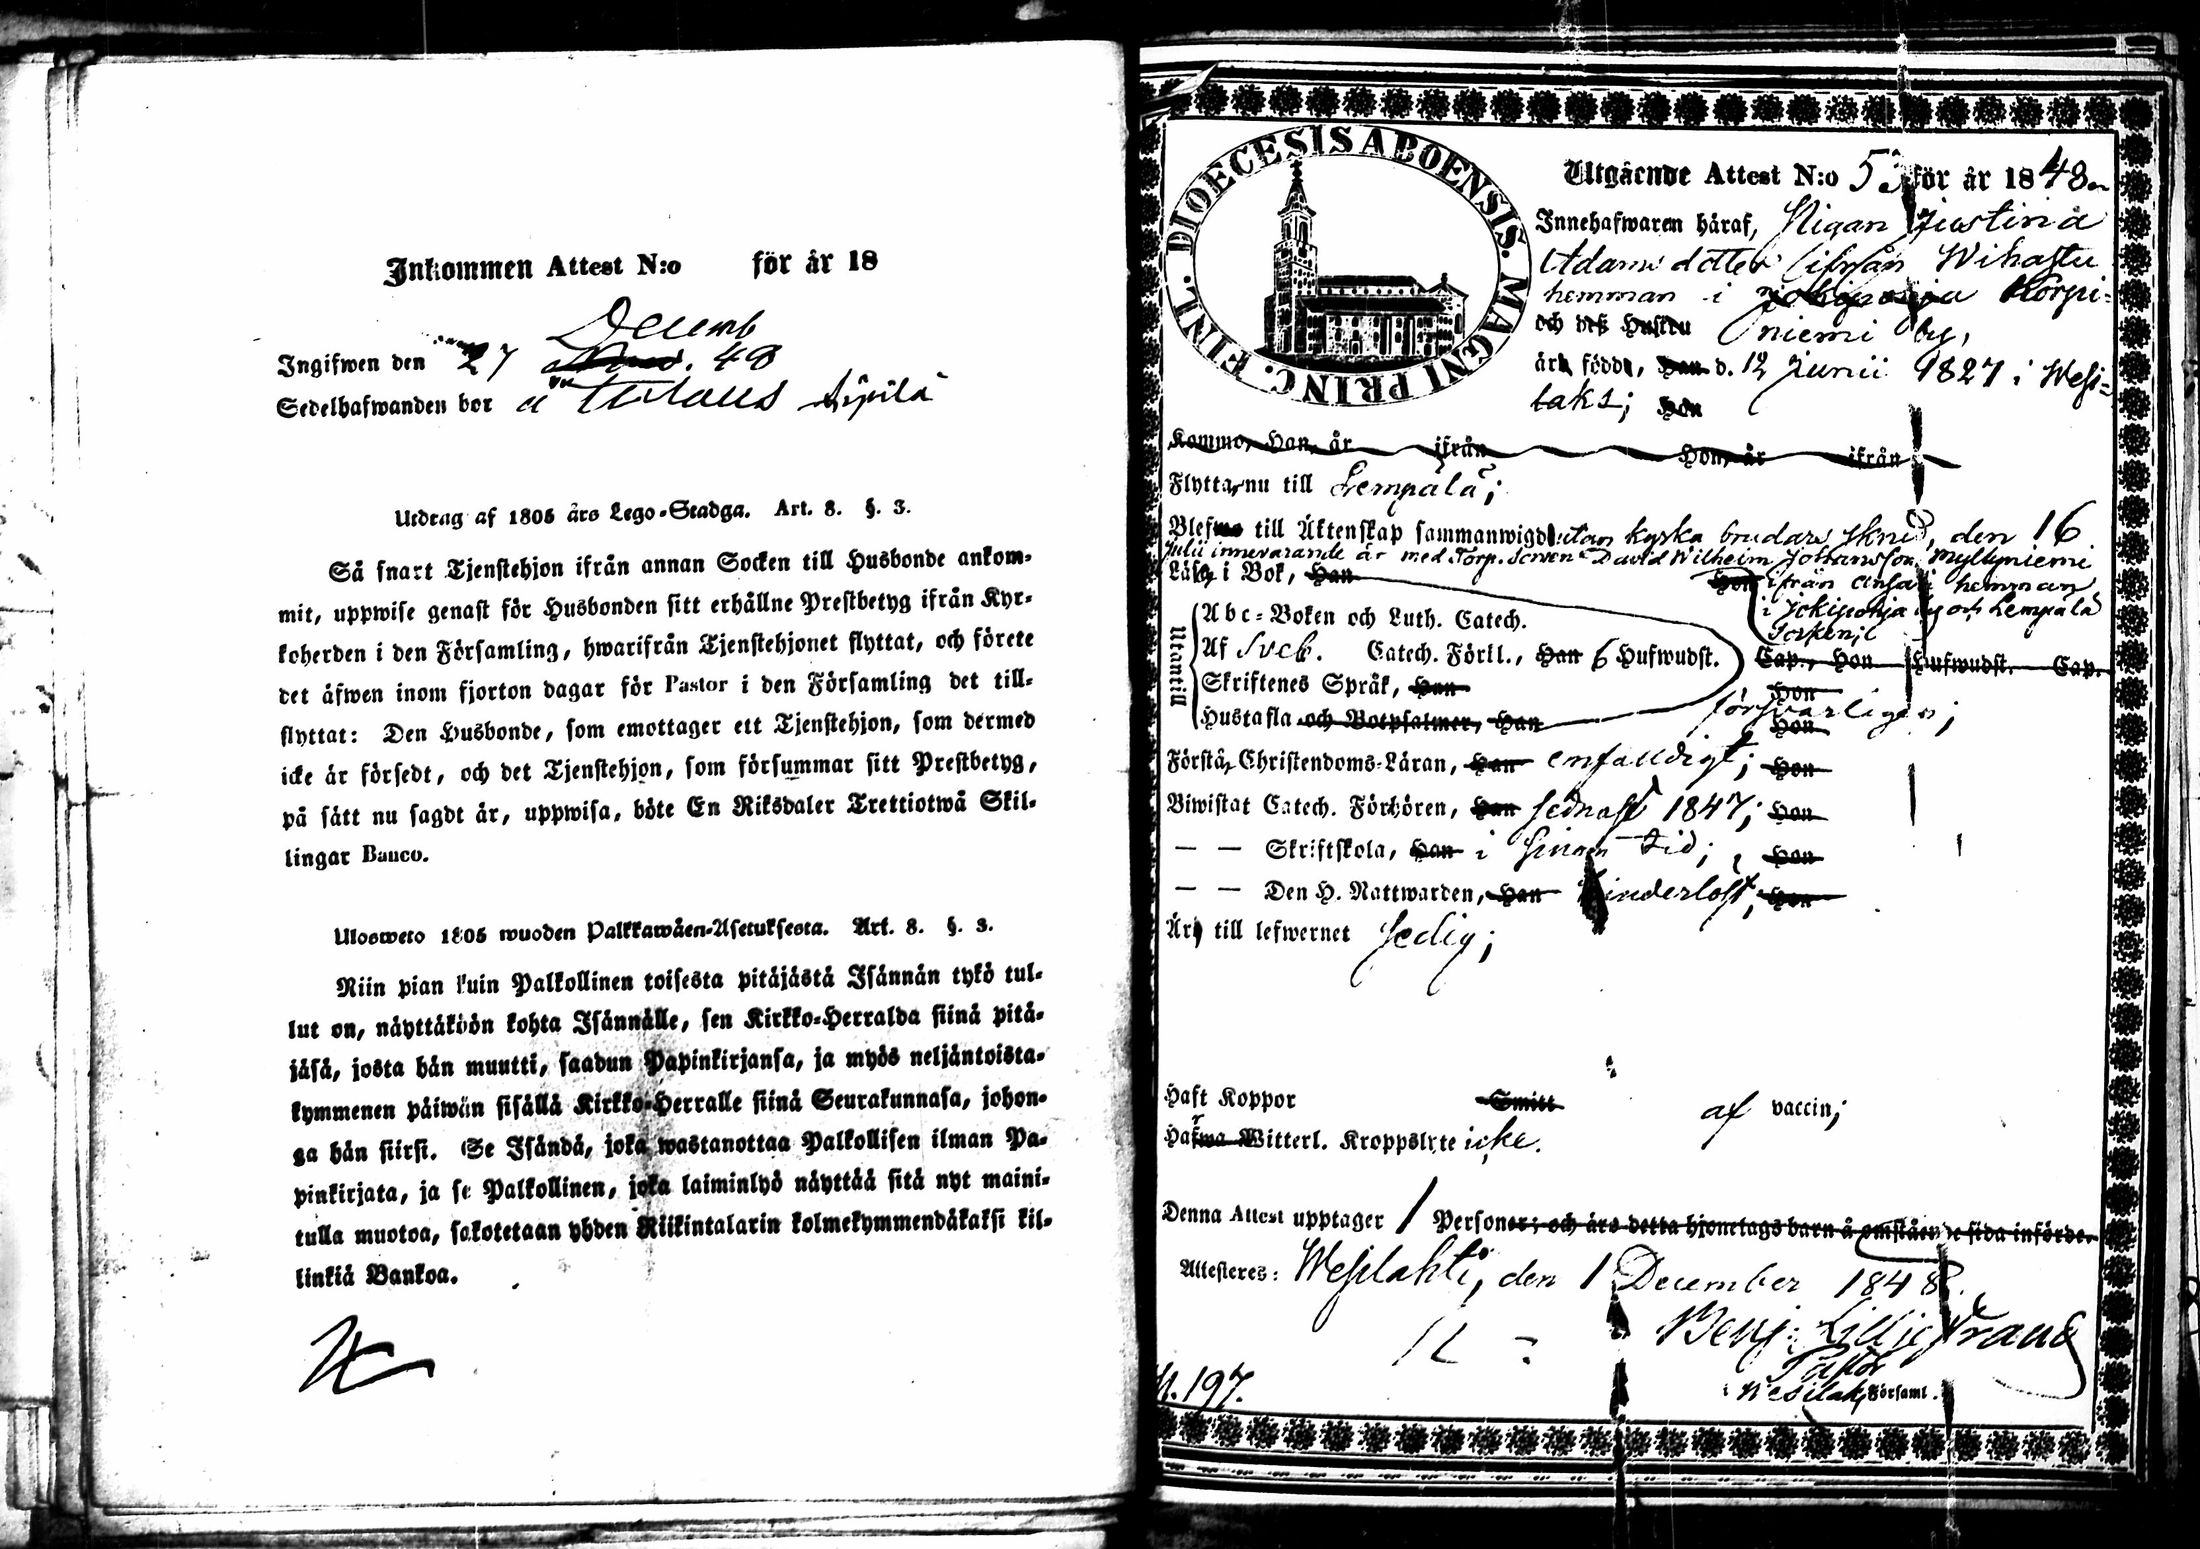 Inkommen Attest N:o för år 18
Decemb
Ingifwen den 27 48
Sedelhafwanden bor å Sipilä
Utdrag af 1805 års Lego-Stadga. Art. 8. §. 3.
Så snart Tjenstehjon ifrån annan Socken till Husbonde ankom-
mit, uppwise genast för Husbonden sitt erhållne Prestbetyg ifrån Kyr-
koherden i den Församling, hwarifrån Tjenstehjonet flyttat, och förete
det äfwen inom fjorton dagar för Pastor i den Församling det till-
flyttat: Den Husbonde, som emottager ett Tjenstehjon, som dermed
icke är försedt, och det Tjenstehjon, som försummar sitt Prestbetyg,
på sätt nu sagdt är, uppwisa, böte En Riksdaler Trettiotwå Skil-
lingar Banco.
Ulosweto 1805 wuoden Palkkawäen-Asetuksesta. Art. 8. §. 3.
Niin pian kuin Palkollinen toisesta pitäjästä Isännän tykö tul-
lut on, näyttäköön kohta Isännälle, sen Kirkko-Herralda siinä pitä-
jäsä, josta hän muutti, saadun Papinkirjansa, ja myös neljäntoista-
kymmenen päiwän sisällä Kirkko-Herralle siinä Seurakunnasa, johon-
ga hän siirsi. Se Isändä, joka wastanottaa Palkollisen ilman Pa-
pinkirjata, ja se Palkollinen, joka laiminlyö näyttää sitä nyt maini-
tulla muotoa, sakotetaan yhden Riikintalarin kolmekymmendäkaksi kil-
linkiä Bankoa.
DIOECESIS ABOENSIS. MAGNI PRINC. FINL.
Utgående Attest N:o 53 för år 1848
Innehafwaren häraf, Pigan Justina
Adams dotter ifrån Wihattu
hemman i Korpi-
och deß Hustru niemi by,
äro födde, Han d. 12 Junii 1827 i Wesi-
laks; Hon
Kommo, Han, år ifrån Hon, år ifrån
Flytta nu till Lempälä;
Blefwo till Äktenskap sammanwigde utan kyska brudars skrud, den 16
Julii innevarande år med Torp. Sonen David Wilhelm Johansson Myllyniemi
Läsa i Bok, Han Hon ifrån Ansa hemman
i Jokipohja by och Lempälä
Socken;
Utantill
Abc-Boken och Luth. Catech.
Af Sveb. Catech. Förkl., Han 6 Hufwudst. Cap., Hon Hufwudst. Cap.
Skriftenes Språk, Han Hon
Hustafla och Botpsalmer, Han försvarligen; Hon
Förstå Christendoms-Läran, Han enfalldigt; Hon
Biwistat Catech. Förhören, Han sednast 1847; Hon
— — Skriftskola, Han i sinom tid; Hon
— — Den H. Nattwarden, Han hinderlöst; Hon
Äro till lefwernet sedig;
Haft Koppor Smitt af vaccin;
Hafwa Witterl. Kroppslyte icke.
Denna Attest upptager 1 Personer; och äro detta hjonelags barn å omstående sida införde.
Attesteres: Wesilahti, den 1 December 1848.
Benj. Lilljestrand
Pastor
i Wesilaks Församl.
N. 197.